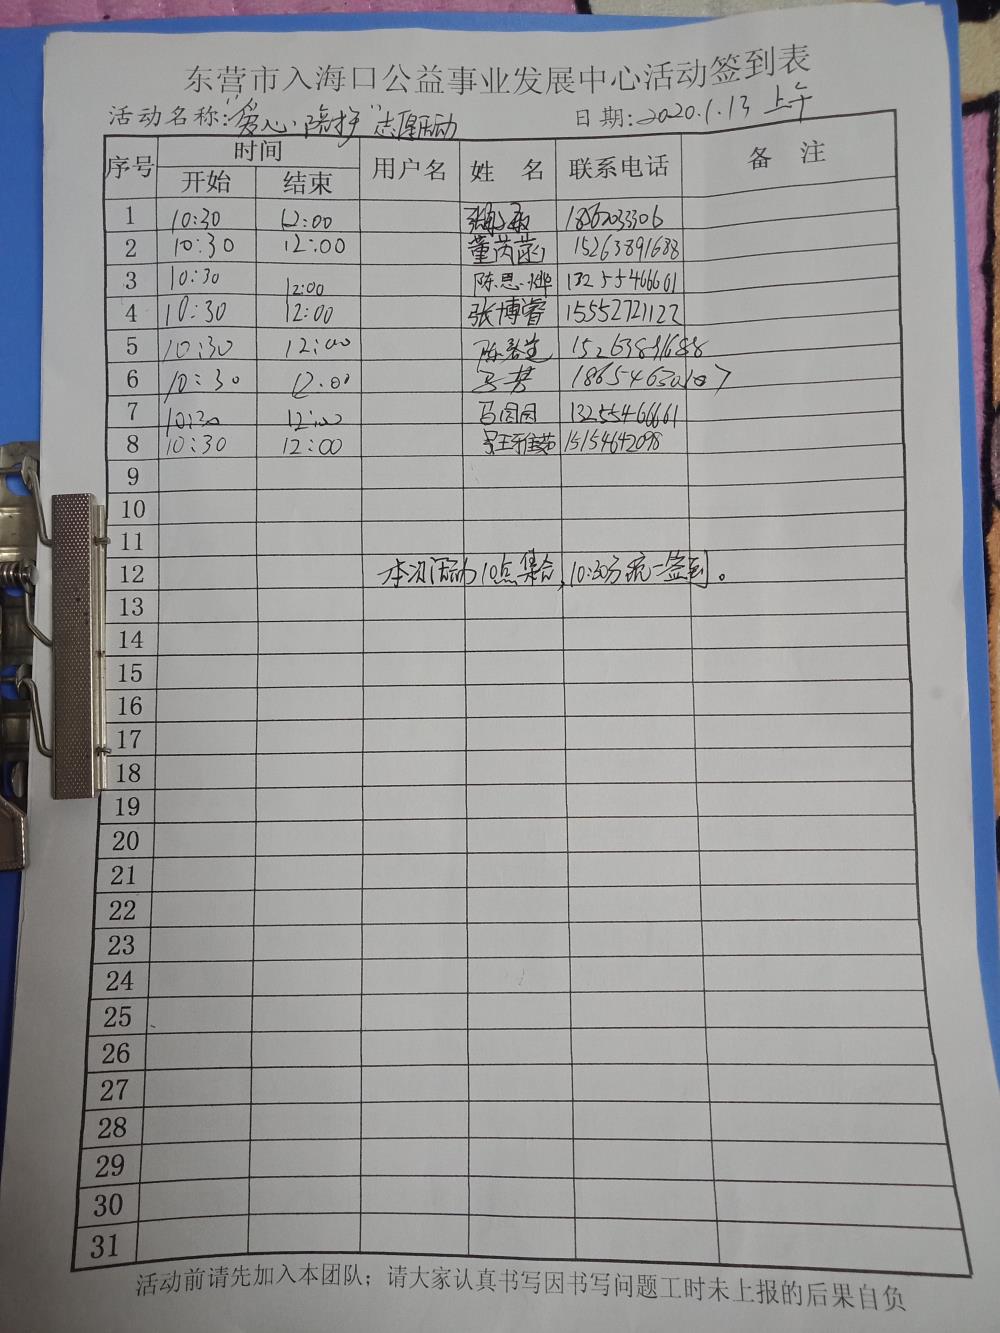 东营市入海口公益事业发展中心活动签到表
活动名称:“爱心·陪护”志愿活动 日期:2020.1.13 上午
序号 时间 用户名 姓 名 联系电话 备 注
开始 结束
1 10:30 12:00
2 10:30 12:00 董芮 15263891688
3 10:30 12:00 陈思烨 13255466661
4 10:30 12:00 张博睿 15552721122
5 10:30 12:00 陈 15263891688
6 10:30 12:00
7 10:30 12:00 马囡囡 13255466661
8 10:30 12:00 15154642098
9
10
11
12 本次活动10点集合,10:30分统一签到。
13
14
15
16
17
18
19
20
21
22
23
24
25
26
27
28
29
30
31
活动前请先加入本团队；请大家认真书写因书写问题工时未上报的后果自负